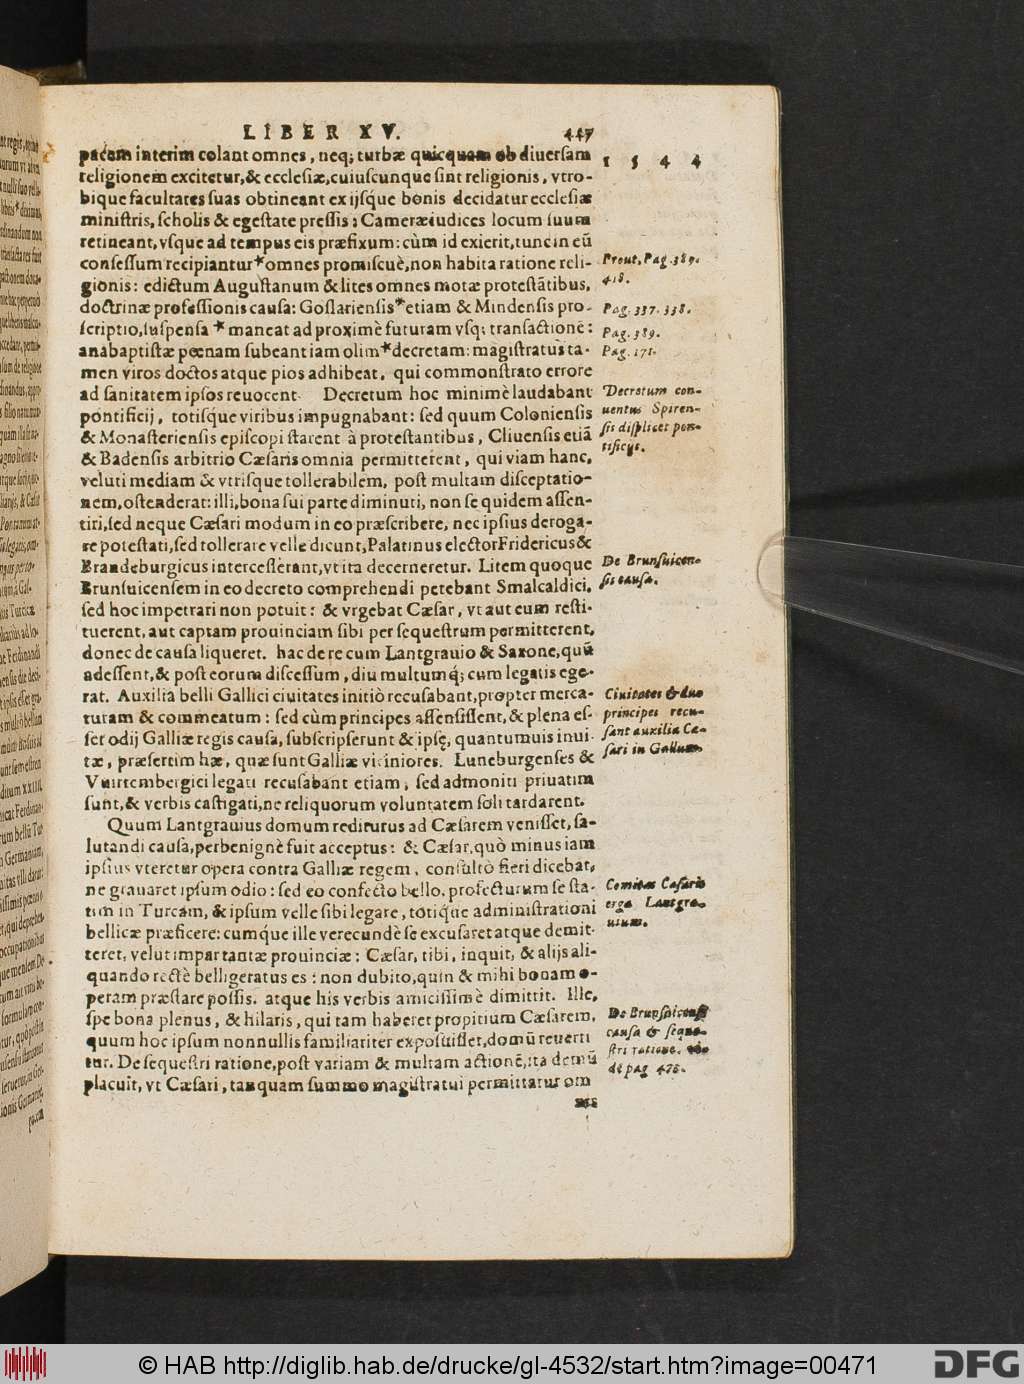 LIBER XV. 447
1 5 4 4
pacem interim colant omnes, neq; turbæ quicquam ob diuersam
religionem excitetur, & ecclesiæ, cuiuscunque sint religionis, vtro-
bique facultates suas obtineant ex ijsq́ue bonis decidatur ecclesiæ
ministris, scholis & egestate pressis: Cameræ iudices locum suum
retineant, vsque ad tempus eis præfixum: cùm id exierit, tunc in eũ
confessum recipiantur * omnes promiscuè, non habita ratione reli-
gionis: edictum Augustanum & lites omnes motæ protestãtibus,
doctrinæ professionis causa: Goslariensis * etiam & Mindensis pro-
scriptio, suspensa * maneat ad proximè futuram vsq; transactionē:
anabaptistæ pœnam subeant iam olim * decretam: magistratus ta-
men viros doctos atque pios adhibeat, qui commonstrato errore
ad sanitatem ipsos reuocent. Decretum hoc minimè laudabant
pontificij, totisq́ue viribus impugnabant: sed quum Coloniensis
& Monasteriensis episcopi starent à protestantibus, Cliuensis etiã
& Badensis arbitrio Cæsaris omnia permitterent, qui viam hanc,
veluti mediam & vtrisque tollerabilem, post multam disceptatio-
nem, ostenderat: illi, bona sui parte diminuti, non se quidem assen-
tiri, sed neque Cæsari modum in eo præscribere, nec ipsius deroga-
re potestati, sed tollerare velle dicunt, Palatinus elector Fridericus &
Brandeburgicus intercesserant, vt ita decerneretur. Litem quoque
Brunsuicensem in eo decreto comprehendi petebant Smalcaldici,
sed hoc impetrari non potuit: & vrgebat Cæsar, vt aut eum resti-
tuerent, aut captam prouinciam sibi per sequestrum permitterent,
donec de causa liqueret. hac de re cum Lantgrauio & Saxone, quũ
adessent, & post eorum discessum, diu multumq́; cum legatis ege-
rat. Auxilia belli Gallici ciuitates initiò recusabant, propter merca-
turam & commeatum: sed cùm principes assensissent, & plena es-
set odij Galliæ regis causa, subscripserunt & ipsę, quantumuis inui-
tæ, præsertim hæ, quæ sunt Galliæ viciniores. Luneburgenses &
Vuirtembergici legati recusabant etiam, sed admoniti priuatim
sunt, & verbis castigati, ne reliquorum voluntatem soli tardarent.
Quum Lantgrauius domum rediturus ad Cæsarem venisset, sa-
lutandi causa, perbenignè fuit acceptus: & Cæsar, quò minus iam
ipsius vteretur opera contra Galliæ regem, consultò fieri dicebat,
ne grauaret ipsum odio: sed eo confecto bello, profecturum se sta-
tim in Turcam, & ipsum velle sibi legare, totiq́ue administrationi
bellicæ præficere: cumq́ue ille verecundè se excusaret atque demit-
teret, velut impar tantæ prouinciæ: Cæsar, tibi, inquit, & alijs ali-
quando rectè belligeratus es: non dubito, quin & mihi bonam o-
peram præstare possis. atque his verbis amicissimè dimittit. Ille,
spe bona plenus, & hilaris, qui tam haberet propitium Cæsarem,
quum hoc ipsum nonnullis familiariter exposuisset, domũ reuerti-
tur. De sequestri ratione, post variam & multam actionē, ita demũ
placuit, vt Cæsari, tanquam summo magistratui permittatur om
Prout, Pag. 389.
418.
Pag. 337. 338.
Pag. 389.
Pag. 171.
Decretum con-
uentus Spiren-
sis displicet pon-
tificijs.
De Brunsuicen-
sis causa.
Ciuitates & duo
principes recu-
sant auxilia Cæ-
sari in Gallum.
Comitas Cæsaris
erga Lantgra-
uium.
De Brunsuicensis
causa & seque-
stri ratione.
de pag 476.
© HAB http://diglib.hab.de/drucke/gl-4532/start.htm?image=00471
DFG